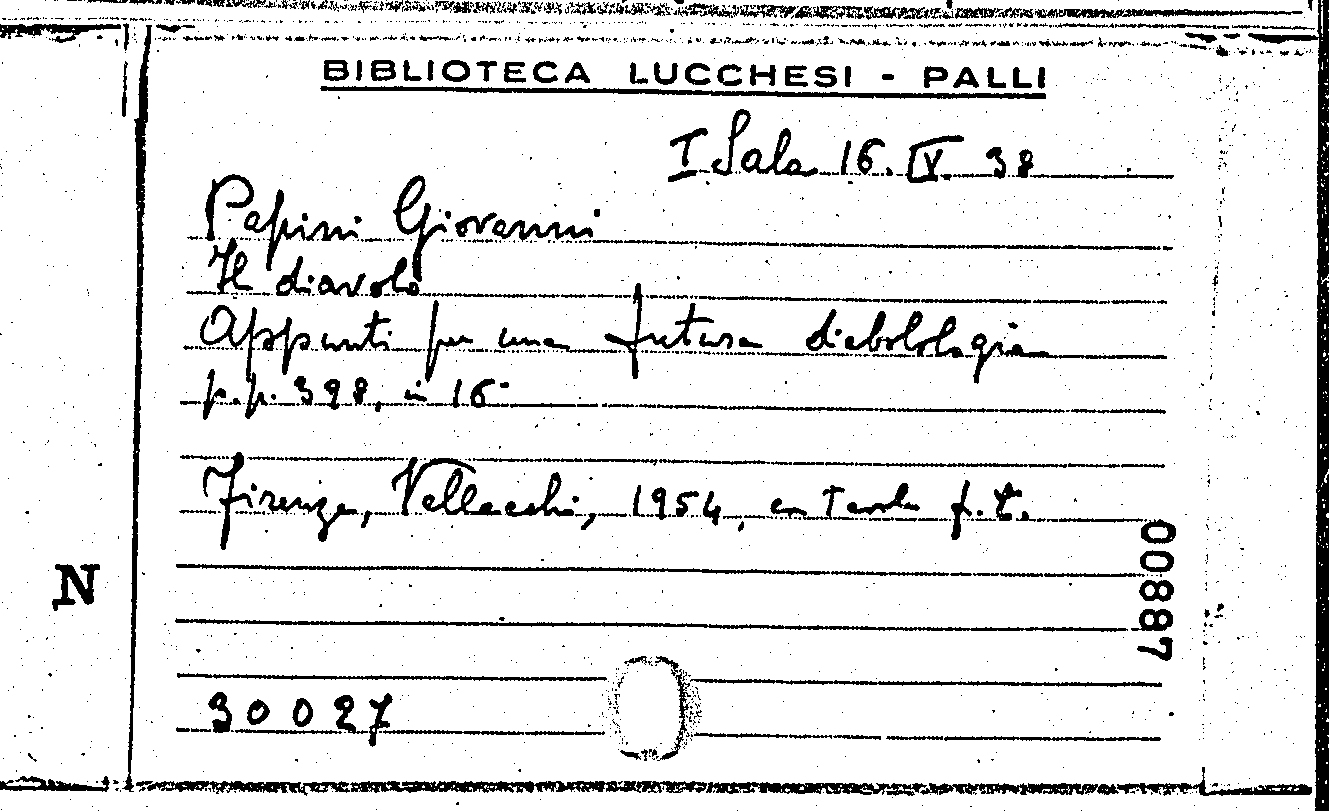 BIBLIOTECA LUCCHESI - PALLI
I Sala 16. IV. 38
Papini Giovanni
Il diavolo
Appunti per una futura diabolologia
p.p. 398, in 16°
Firenze, Vallecchi, 1954, con Tavole f.t.
00887
N
30027